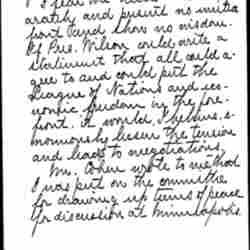 arately and present no united
front and show no wisdom.
If Pres. Wilson could write a
statement that all could a-
gree to and could put the
League of Nations and eco-
nomic freedom in the fore-
front, it would, I believe,
lessen the tension
and lead to negotiations.
Mr. Cohen wrote to me that
I was put on the committee
for drawing up terms of peace
for discussion at Minneapolis.